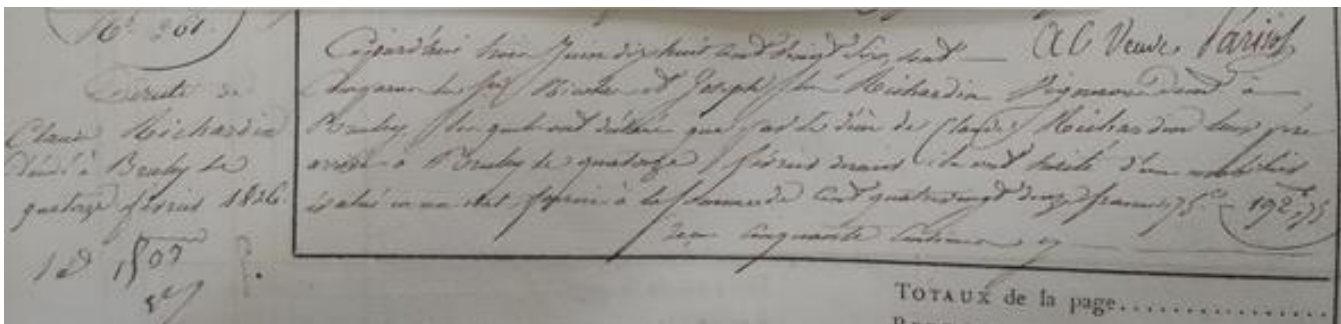 N.º 261.
Claude Richardin
décédé à Bruley le
quatorze février 1826.
A C Veuve Parisot
Aujourd'hui huit Juin dix huit cent vingt six, sont
comparus les Srs Nicolas et Joseph les Richardin Vignerons demt à
Bruley, lesquels ont déclaré que par le décès de Claude Richardin leur père
arrivé à Bruley le quatorze février dernier, ils ont hérité d'un mobilier
évalué en un état fourni à la somme de cent quatrevingt douze francs 75 c. 192,75
reçu cinquante centimes
TOTAUX de la page